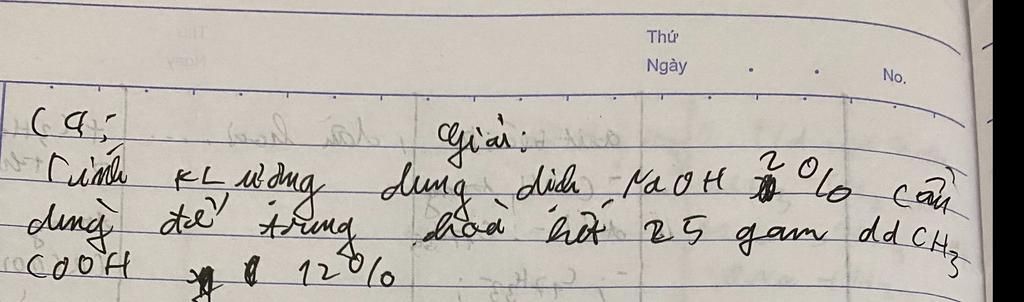 Thứ
Ngày . .
No.
C9:
Giải:
Tính KL ượng dung dịch NaOH 2% cần
dùng để trung hoà hết 25 gam dd CH3
COOH 12%